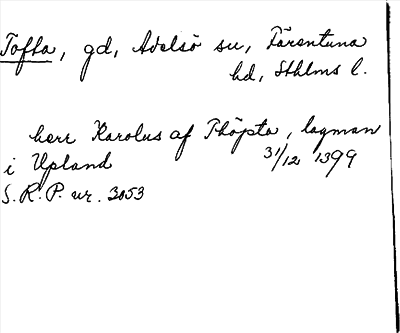 Tofta, gd, Adelsö sn, Färentuna
hd, Sthlms l.
herr Karolus af Thöpta, lagman
i Upland 31/12 1399
S.R.P. nr. 3053